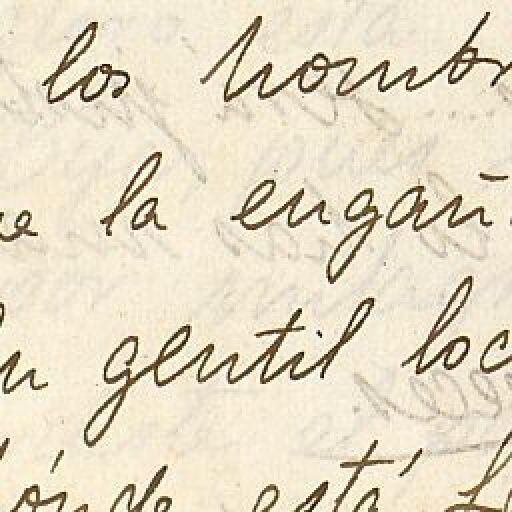 los hombr
la engañ
gentil loc
ónde está